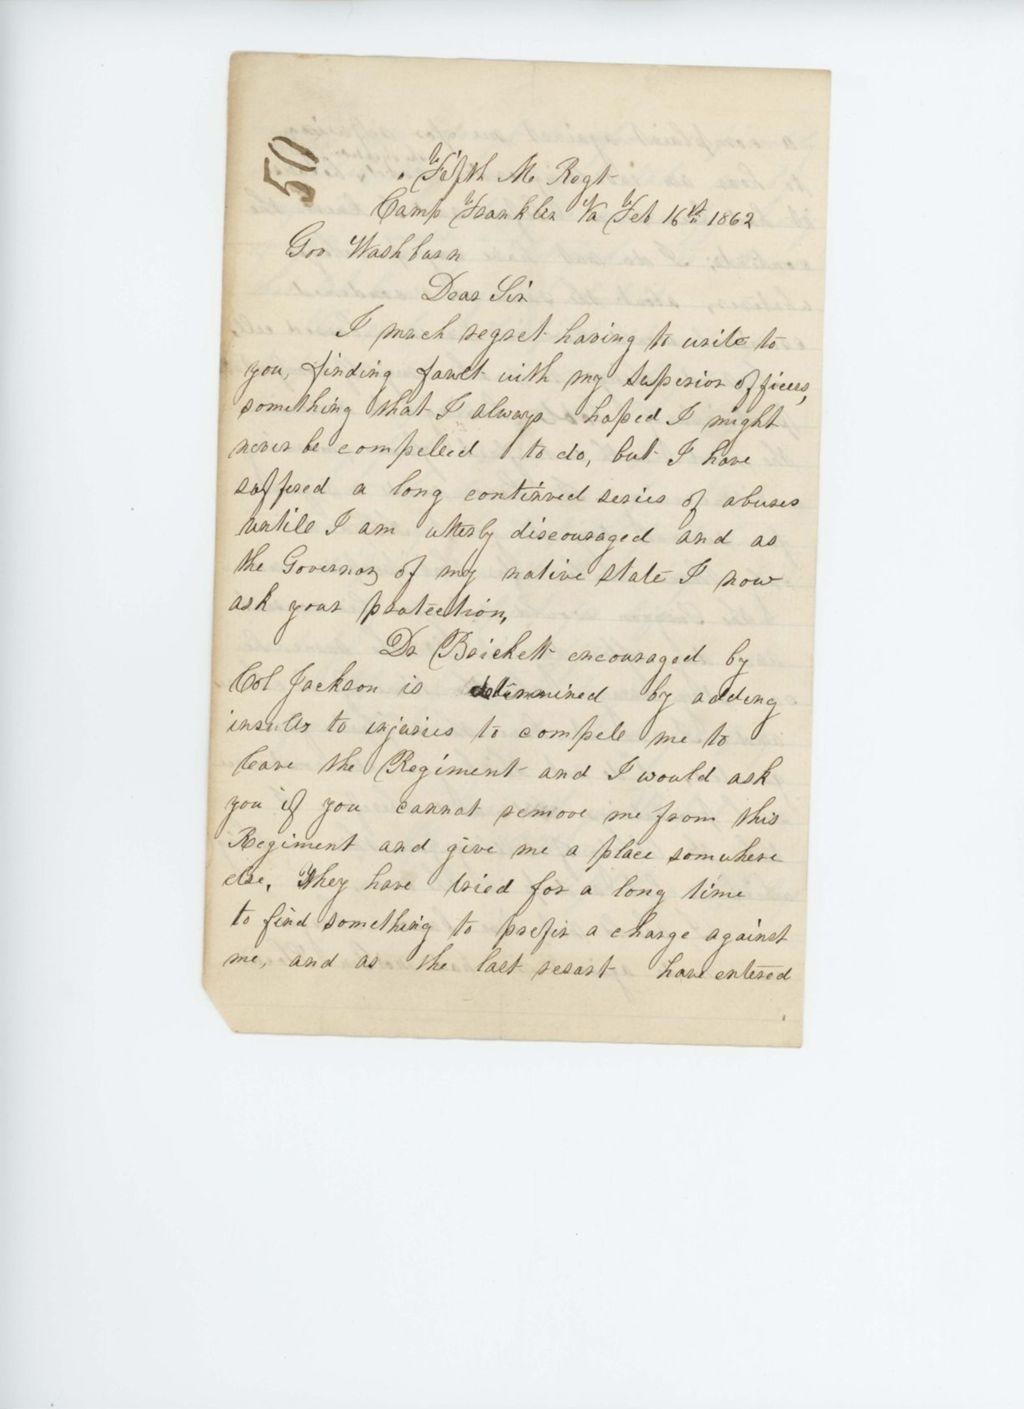 50
Fifth Me Regt
Camp Franklin Va Feb 16th 1862
Gov Washburn
Dear Sir
I much regret having to write to
you, finding fawlt with my superior officers,
something that I always hoped I might
never be compelled to do, but I have
suffered a long continued series of abuses
untile I am utterly discouraged and as
the Governor of my native state I now
ask your protection,
Dr Brickett encouraged by
Col Jackson is determined by adding
insults to injuries to compele me to
leave the Regiment and I would ask
you if you cannot remove me from this
Regiment and give me a place somwhere
else, They have tried for a long time
to find something to prefir a charge against
me, and as the last resort have entered